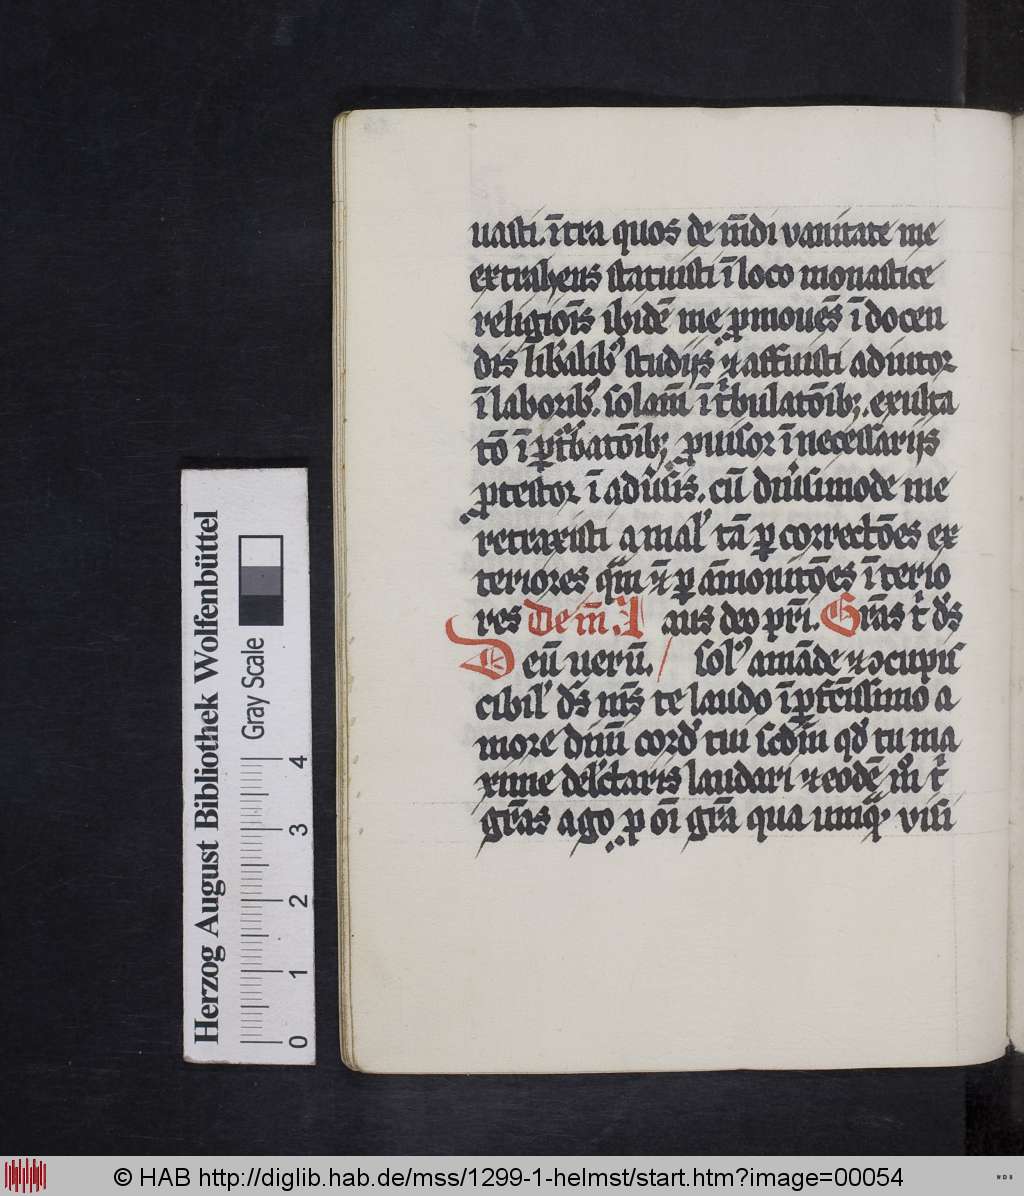 uasti. īt̄ra quos de m̄di vanitate me
extrahens statuisti ī loco monastice
religiōīs ibidē me ꝓmouēs ī docen
dis lib̾alib᷒ studijs ⁊ affuisti adiutor
ī laborib᷒. solam̄ ī tͥbulatōīb⁊. exulta
tō ī ꝑt̾batōīb⁊ ꝓuisor ī necessarijs
ꝓtestor ī adu̾sis. cū diu̾simode me
retraxisti a mal᷒ tā ꝑ correctōes ex
teriores qͣm ⁊ ꝑ āmonitōes īterio
res De m̄. Laus deo pr̄i. Gr̄as tͥ d̄s
Deū uerū. / sol᷒ amāde ⁊ ꝯcupis
cibil᷒ d̄s nr̄s te laudo ī ꝑfc̄issimo a
more diuī cord᷒ tui scd̄m qd̾ tu ma
xime del̾ctaris laudari ⁊ eodē mͦ tͥ
gr̄as ago ꝓ oī gr̄a qua umqͣ visi
Herzog August Bibliothek Wolfenbüttel
Gray Scale
0 1 2 3 4
© HAB http://diglib.hab.de/mss/1299-1-helmst/start.htm?image=00054